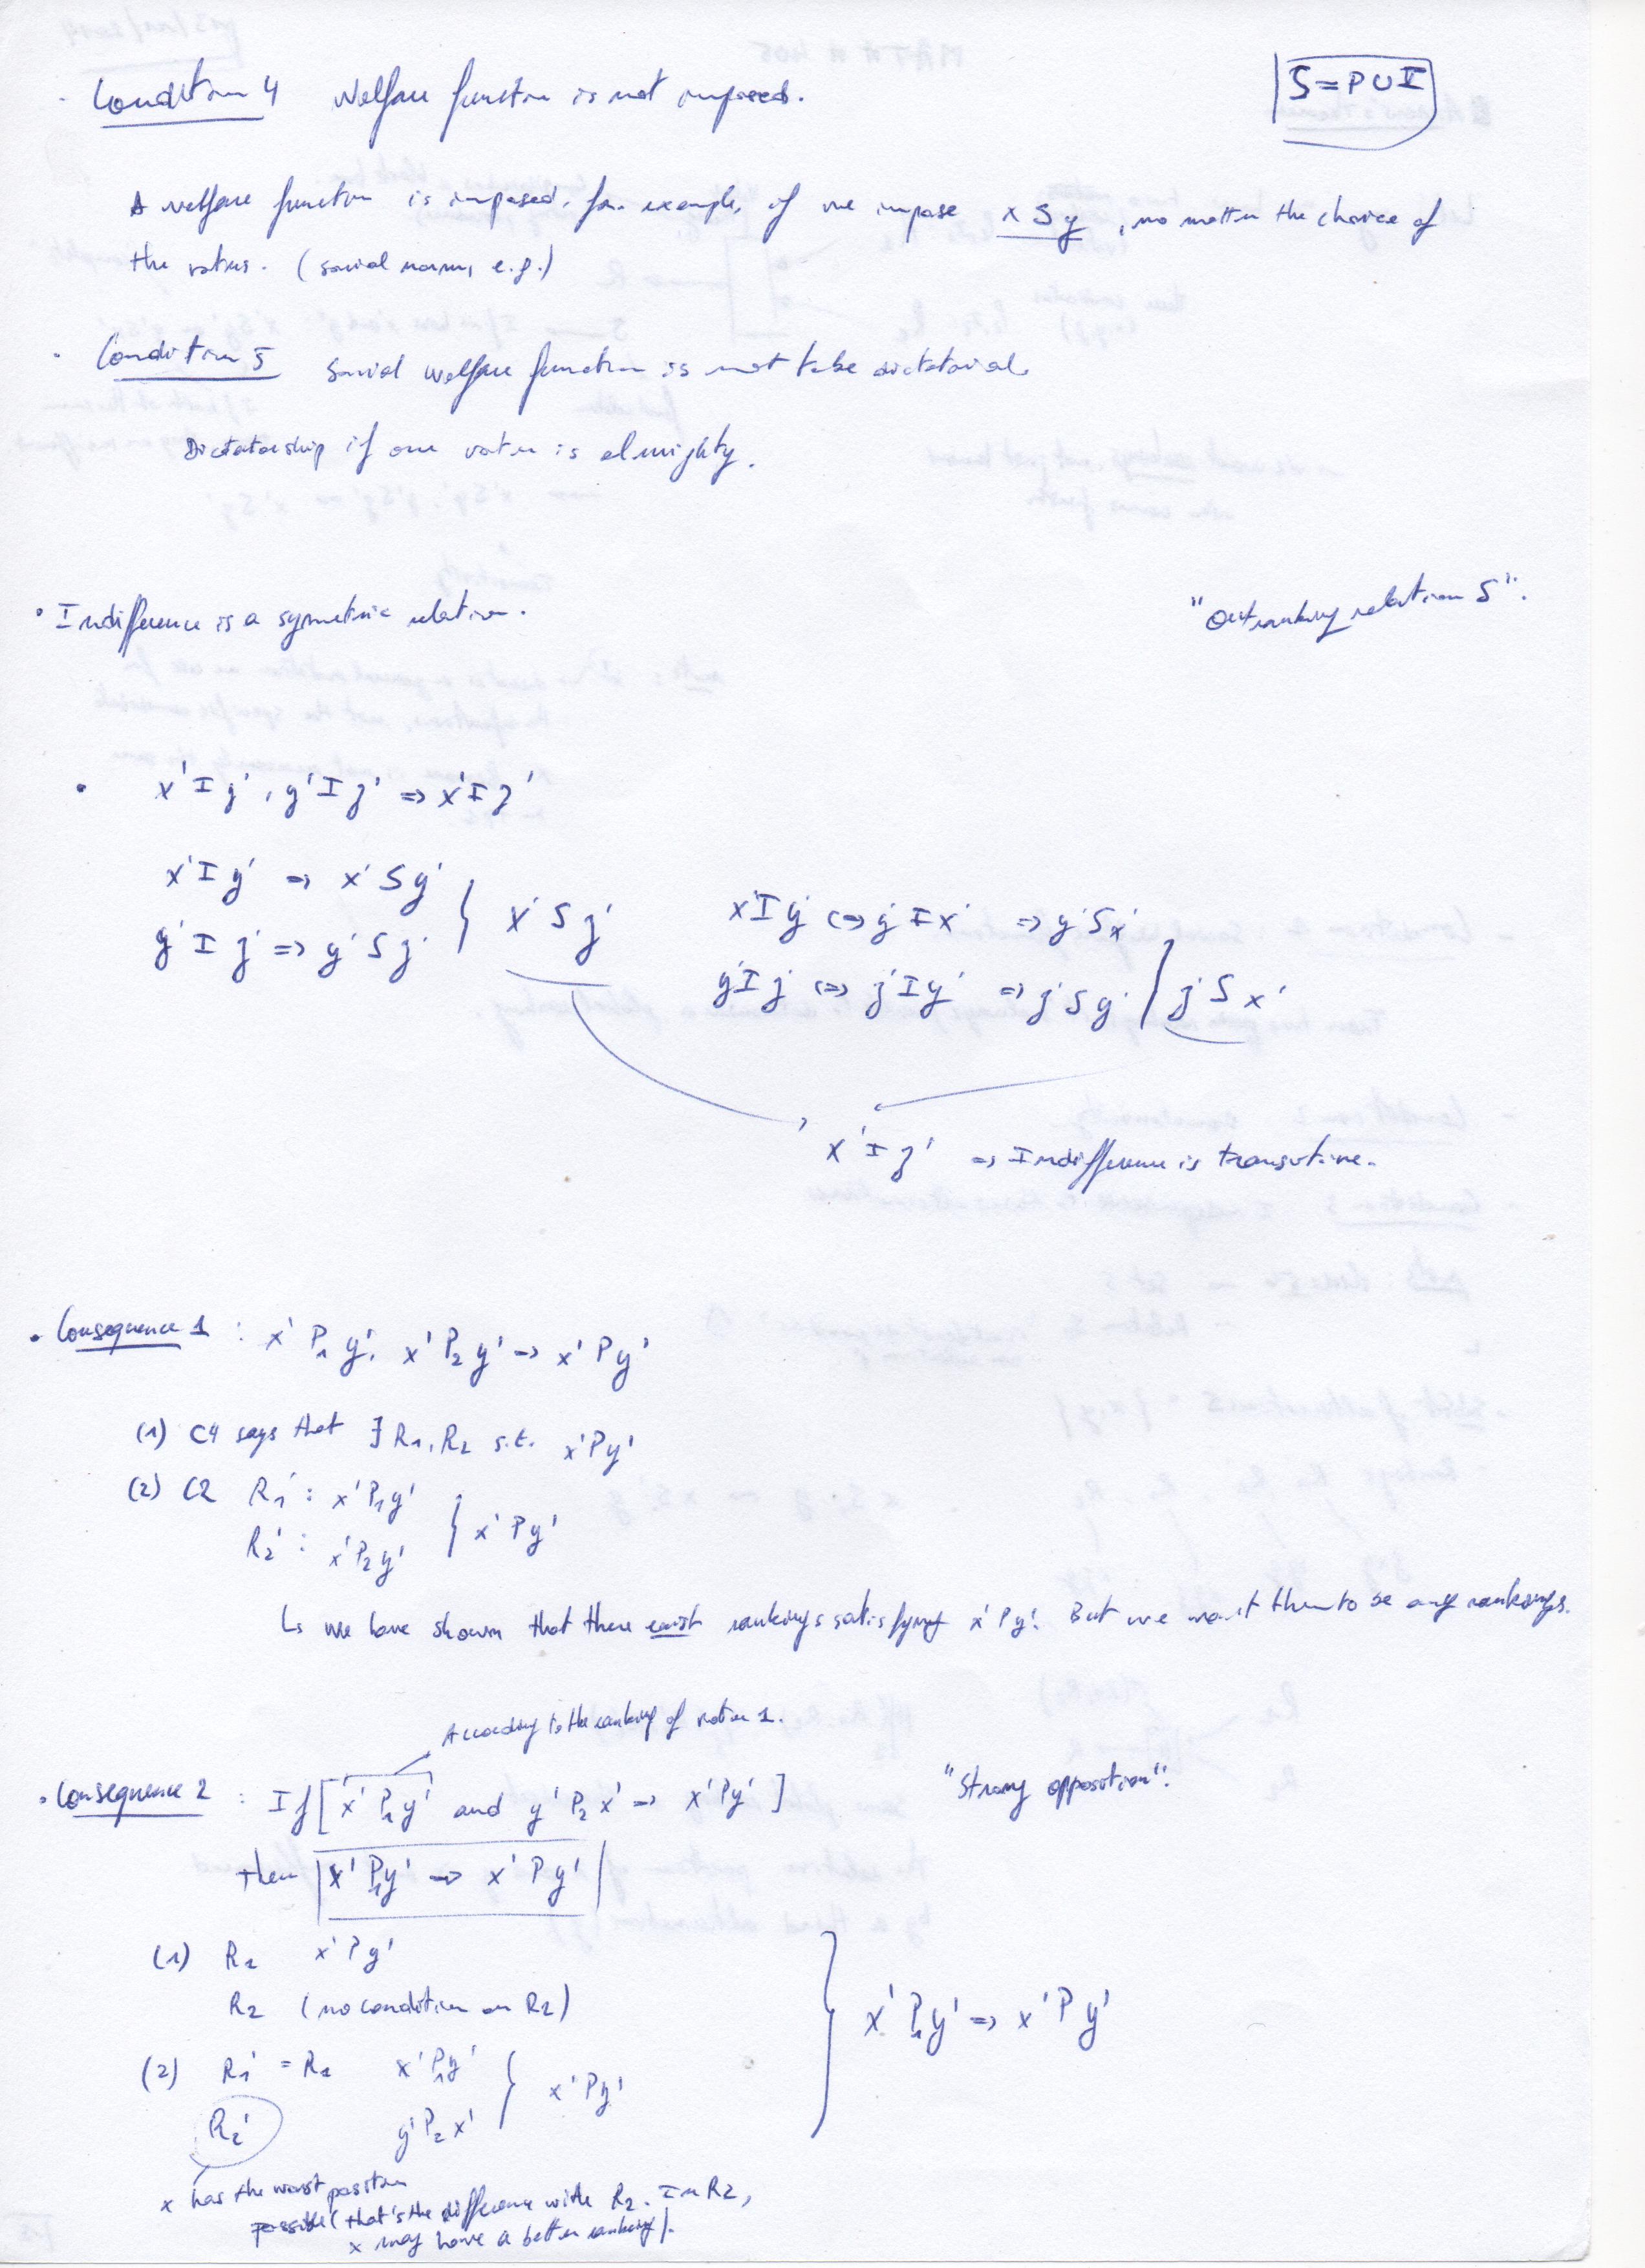 · Condition 4 Welfare function is not imposed.
S = P ∪ I
A welfare function is imposed, for example, if we impose x S y, no matter the choice of
the voters. (social norms, e.g.)
· Condition 5 Social welfare function is not to be dictatorial.
Dictatorship if one voter is almighty.
• Indifference is a symetric relation.
"Outranking relation S".
• x' I y', y' I z' => x' I z'
x' I y' => x' S y'
y' I z' => y' S z' } x' S z'
x' I y' <=> y' I x' => y' S x'
y' I z' <=> z' I y' => z' S y' } z' S x'
x' I z' => Indifference is transitive.
• Consequence 1 : x' P₁ y', x' P₂ y' => x' P y'
(1) C4 says that ∃ R₁, R₂ s.t. x' P y'
(2) C2 R₁' : x' P₁ y'
R₂' : x' P₂ y' } x' P y'
↳ we have shown that there exist rankings satisfying x' P y'. But we want them to be any rankings.
According to the ranking of voter 1.
• Consequence 2 : If [ x' P₁ y' and y' P₂ x' => x' P y' ]
"Strong opposition".
then x' P₁ y' => x' P y'
(1) R₁ x' P y'
R₂ (no condition on R₂)
(2) R₁' = R₁ x' P₁ y'
R₂' y' P₂ x' } x' P y'
} x' P₁ y' => x' P y'
x has the worst position
possible (that's the difference with R₂. In R₂,
x may have a better ranking).